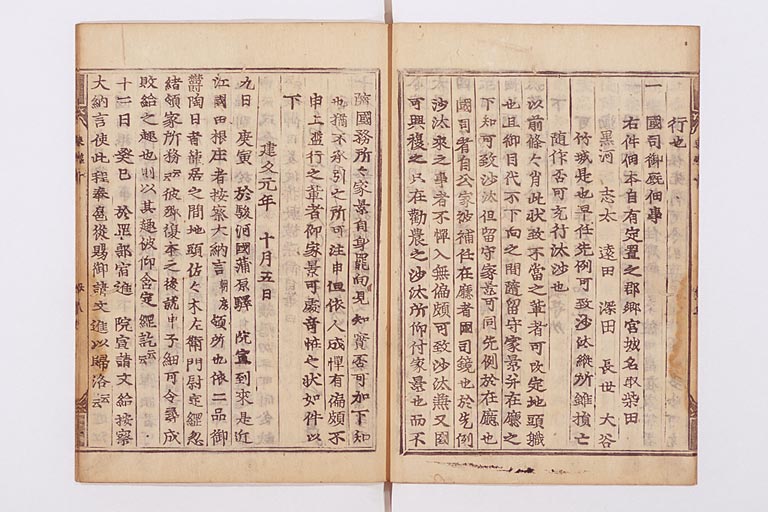 行也
一 國司御厩佃事
右件佃本自有定置之郡鄕宮城名取柴田
黒河 志太 遠田 深田 長世 大谷
竹城是也早任先例可致沙汰縱所雖損亡
随作否可充行汰沙也
以前條々背此狀致不當之輩者可改定地頭職
也且御目代不下向之間随留守家景幷在廳之
下知可致沙汰但留守家景可同先例於在廳也
國司者自公家被補任在廳者國司鏡也於先例
沙汰來之事者不憚入無偏頗可致沙汰兼又國
可興複之只在勸農之沙汰所仰付家景也而不
隋國務所々家景自身罷向見知實否可加下知
也猶不承引之所可注申但依人成憚有偏頗不
申上盬行之輩者仰家景可處奇恠之狀如件以
下
建久元年 十月五日
九日 庚寅 於駿河國蒲原驛 院宣到來是近
江國田根庄者按察大納言 朝房 領所也依二品御
欝陶日者謙居之間地頭佐々木左衛門尉定綱忽
緒領家所務云云彼卿復本之後就申子細可令尋成
敗給之趣也則以其趣被仰含定綱訖云云
十二日 癸巳 於罘部宿進 院宣請文給按察
大納言使此程奉扈從賜御請文進以歸洛云云